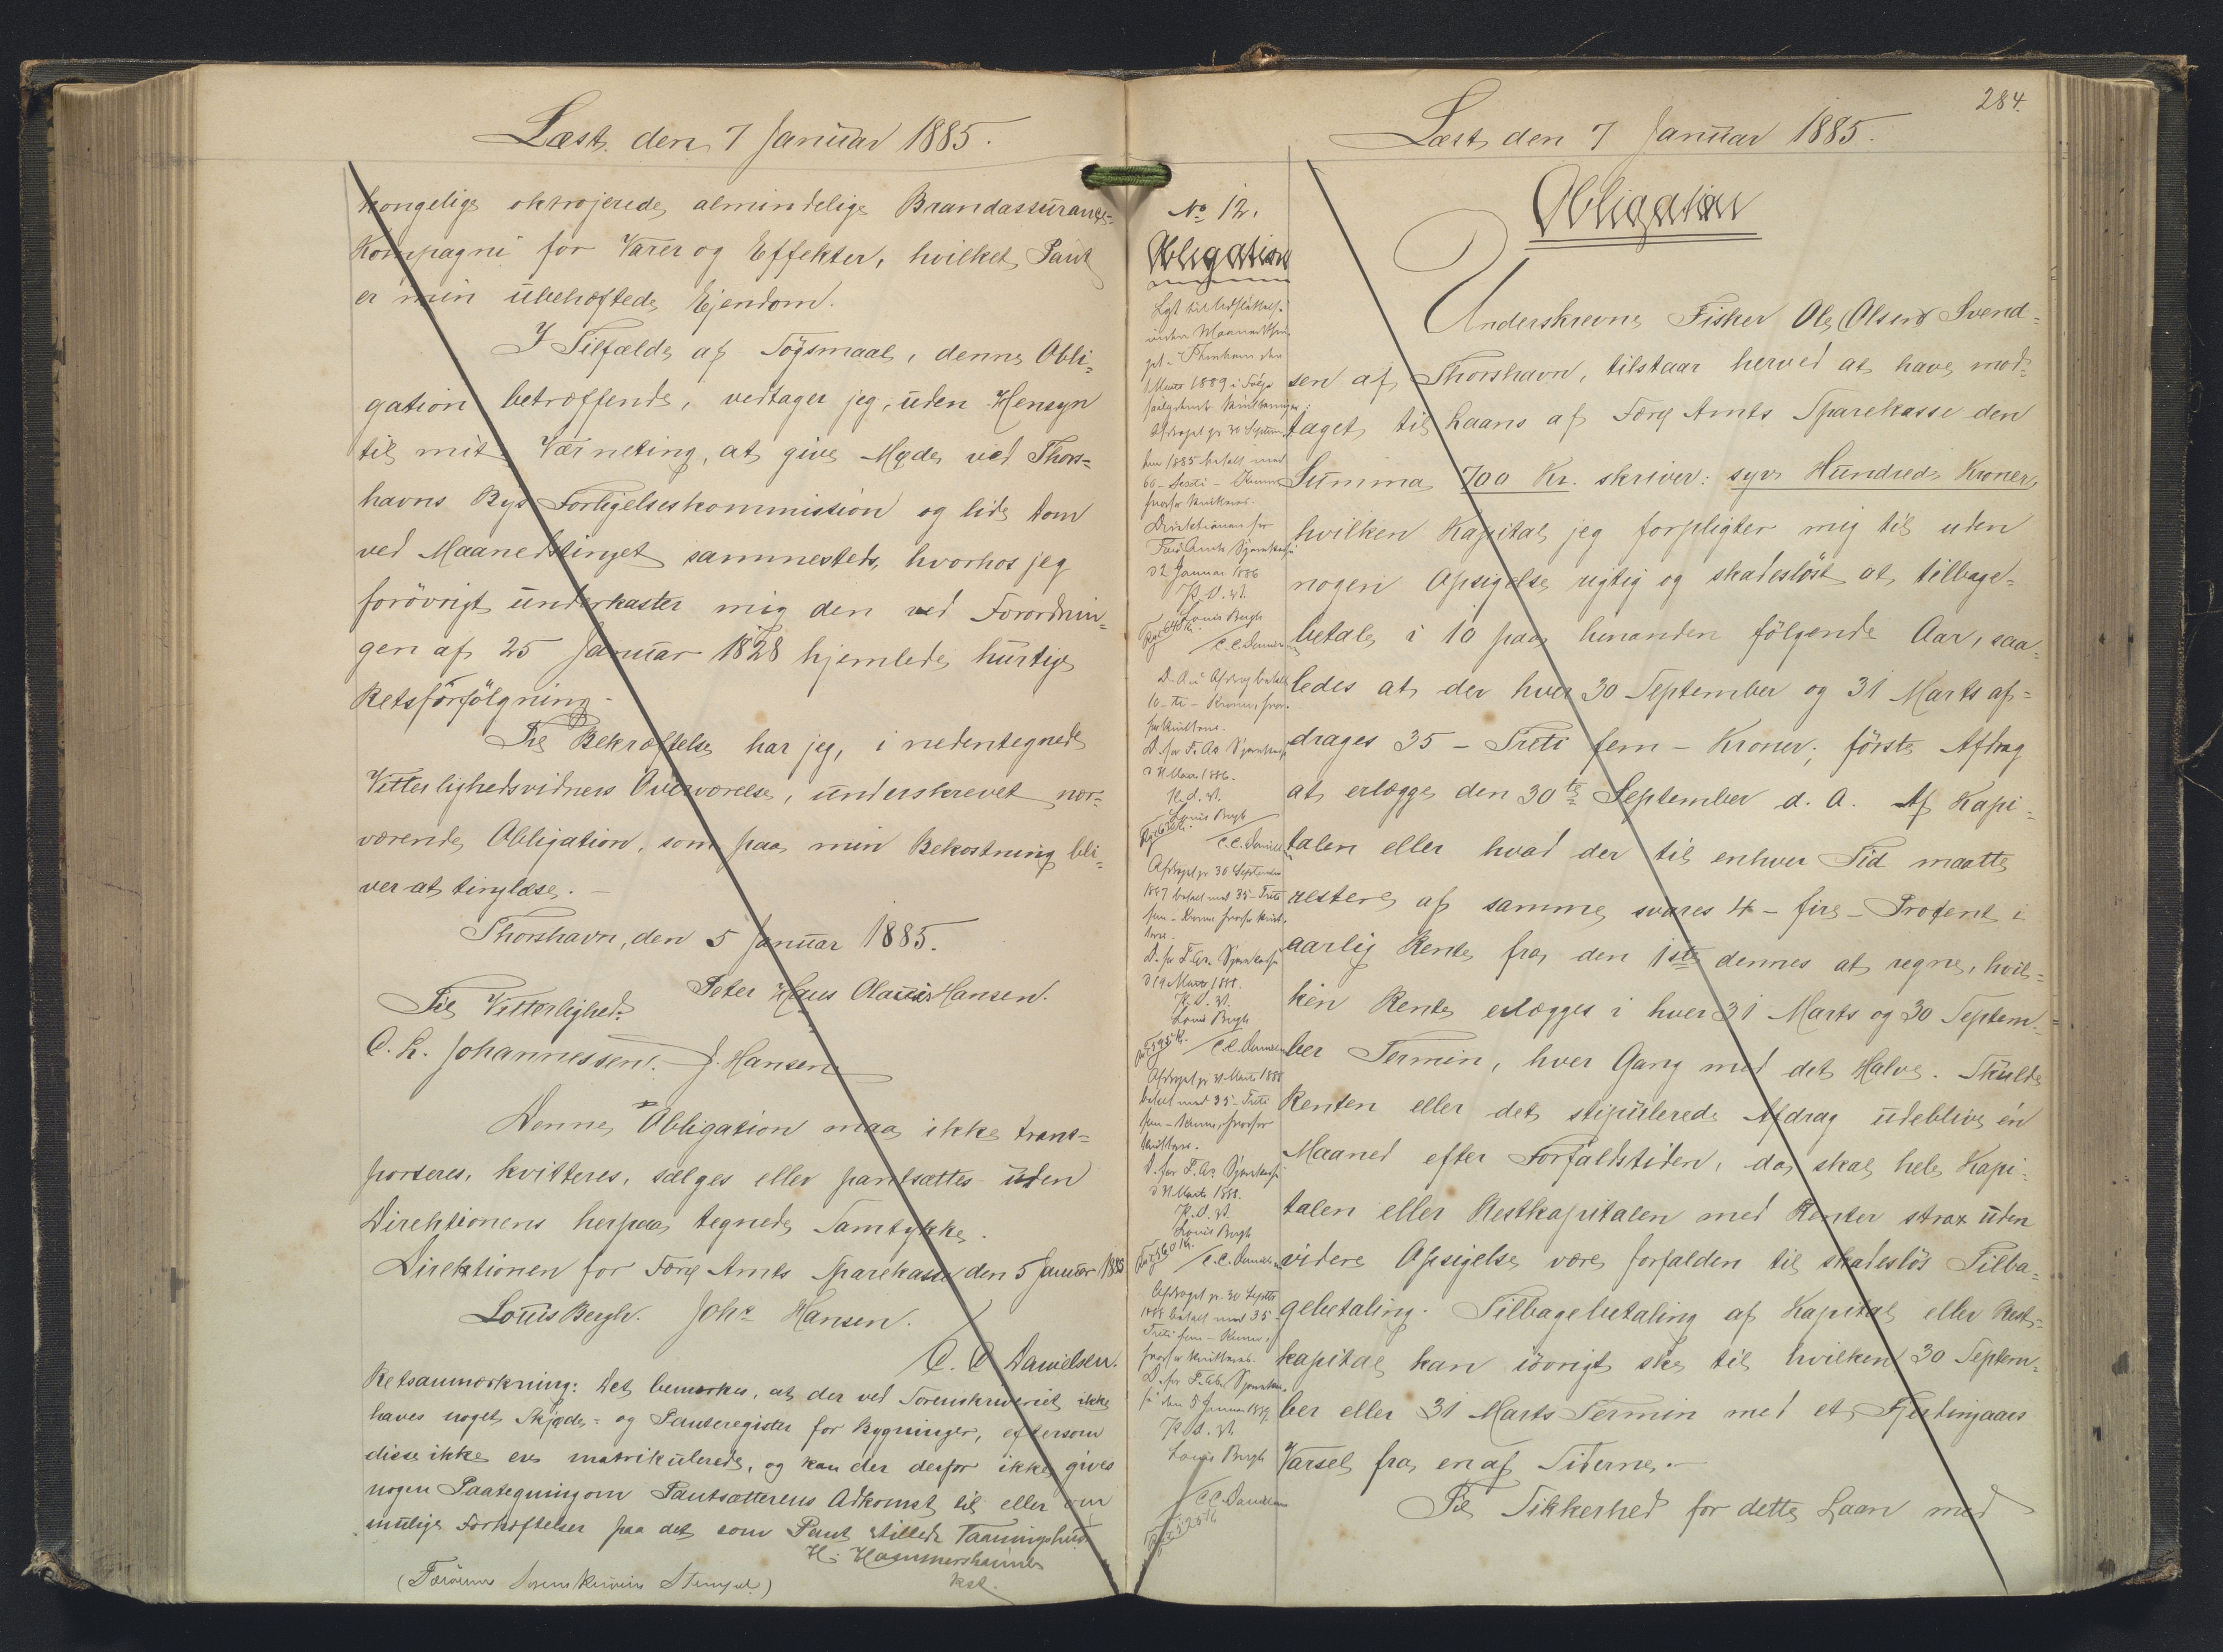 Læst den 7 Januar 1885.
kongelige oktrojerede almindelige Brandassurance-
Kompagni for Varer og Effekter, hvilket Pant
er min ubehæftede Ejendom.
I Tilfælde af Søgsmaal, denne Obli-
gation betræffende, vedtager jeg, uden Hensyn
til mit Værneting, at give Møde ved Thors-
havns Bys Forligelseskommission og lide Dom
ved Maanedstinget sammesteds, hvorhos jeg
forövrigt underkaster mig den ved Forordnin-
gen af 25 Januar 1828 hjemlede hurtige
Retsforfölgning.
Til Bekræftelse har jeg, i nedentegnede
Vitterlighedsvidners Overværelse, underskrevet nær-
værende Obligation, som paa min Bekostning bli-
ver at tinglæse. -
Thorshavn, den 5 Januar 1885.
Peter Hans Olaus Hansen.
Til Vitterlighed:
C. L. Johannessen. J. Hansen
Denne Obligation maa ikke trans-
porteres, kvitteres, sælges eller pantsættes uden
Direktionens herpaa tegnede Samtykke.
Direktionen for Færø Amts Sparekasse den 5 Januar 1885
Louis Bergh. Johs. Hansen.
C. C. Danielsen.
Retsanmærkning: Det bemærkes, at der ved Sorenskriveriet ikke
haves noget Skjøde- og Panteregister for Bygninger, eftersom
disse ikke ere matrikulerede, og kan der derfor ikke gives
nogen Paategning om Pantsætterens Adkomst til eller om
mulige Forhæftelser paa det som Pant stillede Vaaningshus.
H. Hammershaimb
kst.
(Færöernes Sorenskriveris Stempel.)
No 12.
Obligation
Lyst til Udslettelse
inden Maanedsthin-
get i Thorshavn den
1889 i Følge
Afdraget pr 30 Septem-
ber 1885 betalt med
60 - Sexti - Kroner
hvorfor kvitteres.
Direktionen for
Færö Amts Sparekasse
d 2 Januar 1886
P. D. V.
Louis Bergh
C. C. Danielsen
Rest 640 Kr.
10 - ti - Kroner, hvor-
for kvitteres.
D. for F. A. Sparekasse
P. D. V.
Louis Bergh
C. C. Danielsen
Rest 630 Kr.
Afdraget pr 30 September
1887 betalt med 35 - Treti
fem - Kroner hvorfor kvit-
teres.
D. for F. A. Sparekasse
d 19 Marts 1888.
P. D. V.
Louis Bergh
C. C. Danielsen
Rest 595 Kr.
Afdraget pr 31 Marts 1888
betalt med 35 - Treti
fem - Kroner, hvorfor
kvitteres.
D. for F. A. Sparekasse
d 31 Marts 1888.
P. D. V.
Louis Bergh
C. C. Danielsen
Rest 560 Kr.
Afdraget pr. 30 Septbr
1888 betalt med 35
Treti fem - Kroner,
hvorfor kvitteres.
D. for F. A. Sparekas-
se den 5 Januar 1889.
P. D. V.
Louis Bergh
C. C. Danielsen
Rest 525 Kr
284.
Læst den 7 Januar 1885.
Obligation
Underskrevne Fisker Ole Olsen Svend-
sen af Thorshavn, tilstaar herved at have mod-
taget til Laans af Færø Amts Sparekasse den
Summa 700 Kr. skriver: syv Hundrede Kroner,
hvilken Kapital jeg forpligter mig til uden
nogen Opsigelse rigtig og skadesløst at tilbage-
betale i 10 paa hinanden fölgende Aar, saa-
ledes at der hver 30 September og 31 Marts af-
drages 35 - Treti fem - Kroner; förste Afdrag
at erlægge den 30te September d. A. Af Kapi-
talen eller hvad der til enhver Tid maatte
restere af samme svares 4 - fire - Procent i
aarlig Rente fra den 1ste dennes at regne, hvil-
ken Rente erlægges i hver 31 Marts og 30 Septem-
ber Termin, hver Gang med det Halve. Skulde
Renten eller det stipulerede Afdrag udeblive én
Maaned efter Forfaldstiden, da skal hele Kapi-
talen eller Restkapitalen med Renter strax uden
videre Opsigelse være forfalden til skadeslös Tilba-
gebetaling. Tilbagebetaling af Kapital eller Rest-
kapital kan iövrigt ske til hvilken 30 Septem-
ber eller 31 Marts Termin med et Fjerdingaars
Varsel fra en af Siderne. -
Til Sikkerhed for dette Laan med